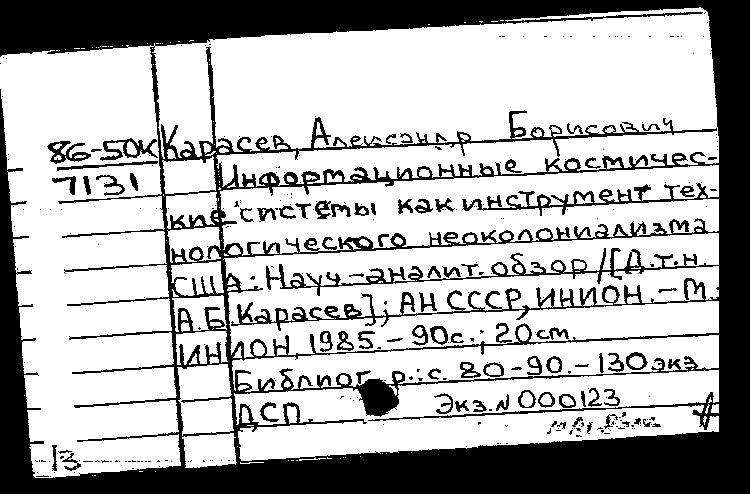 86-50К Карасев, Александр Борисович
7131 Информационные космичес-
кие системы как инструмент тех-
нологического неоколониализма
США: Науч.-аналит. обзор / [Д.т.н.
А.Б. Карасев]; АН СССР, ИНИОН. - М.:
ИНИОН, 1985. - 90с.; 20см.
Библиогр.: с. 80-90. - 130 экз.
ДСП. Экз. N 000123
13